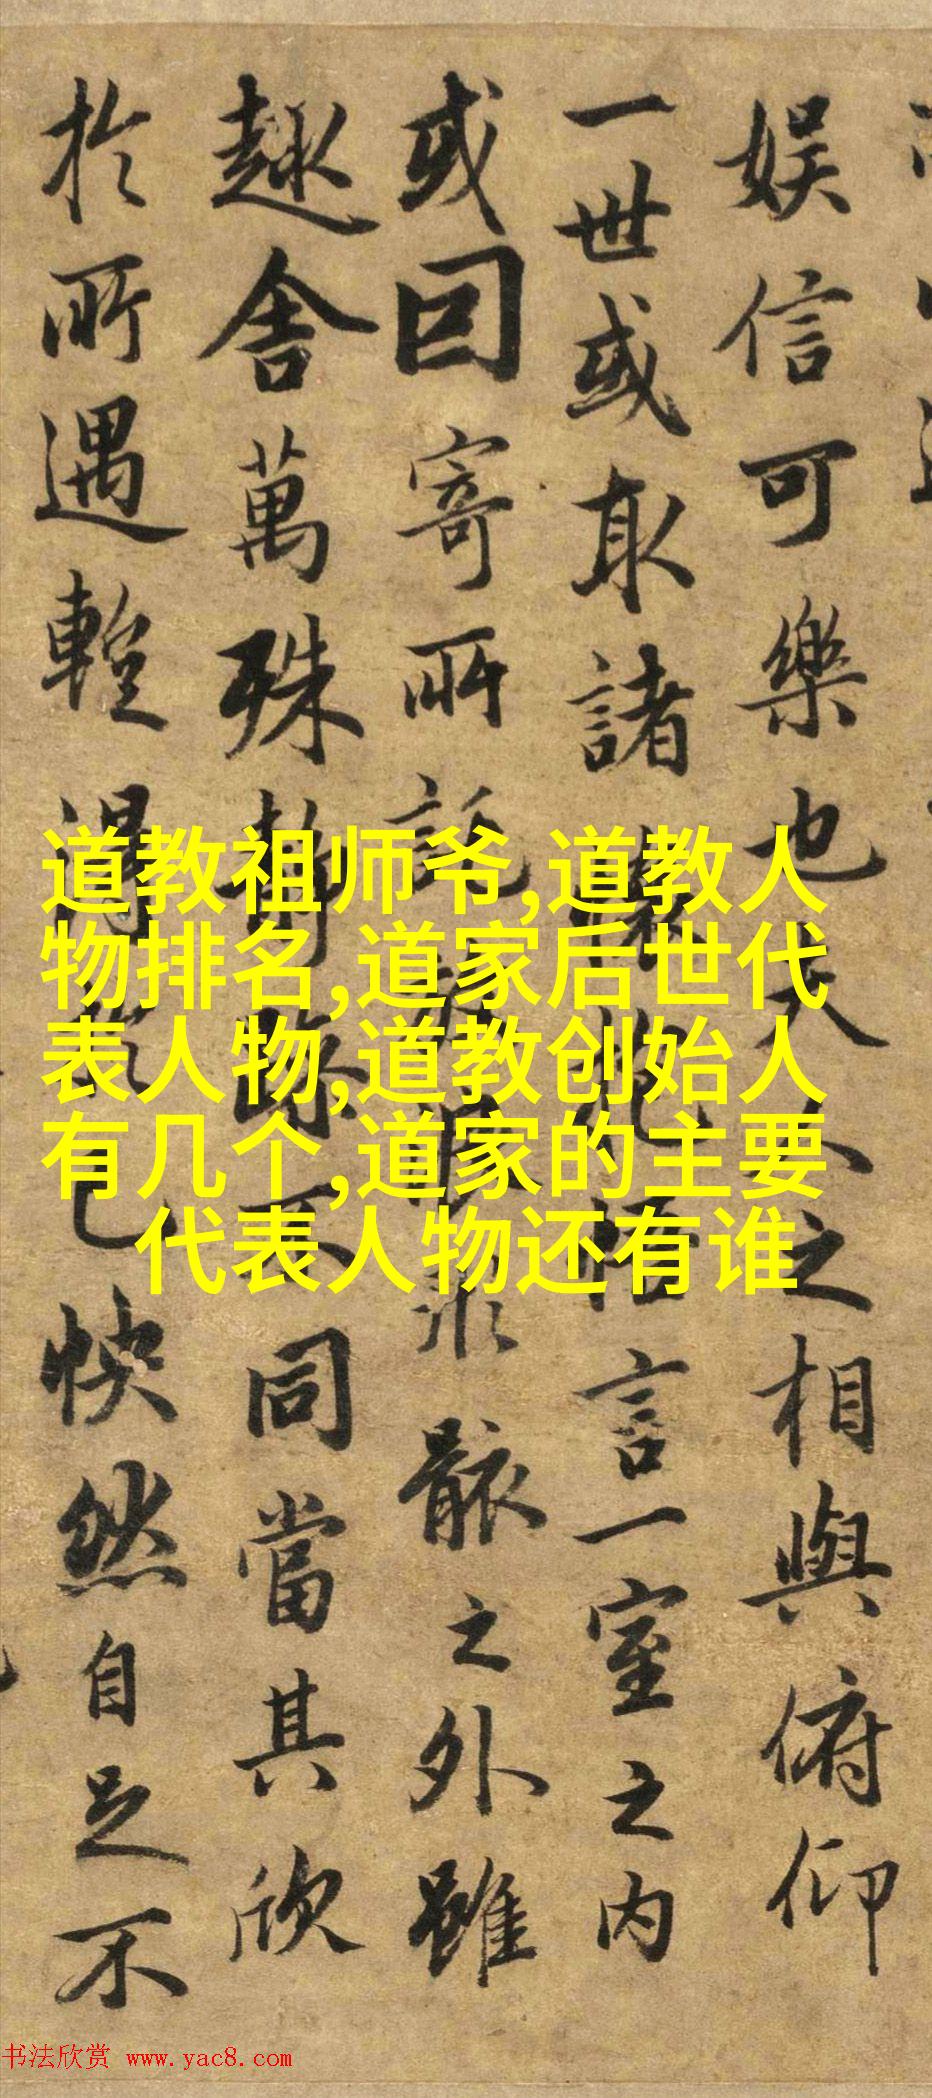 娱信可樂也夫人之相與俯仰
一世或取諸懷抱悟言一室之内
或因寄所託放浪形骸之外雖
趣舍萬殊静躁不同當其欣
於所遇得於己快然自足不
道教祖师爷,道教人
物排名,道家后世代
表人物,道教创始人
有几个,道家的主要
代表人物还有谁
书法欣赏 www.yac8.com